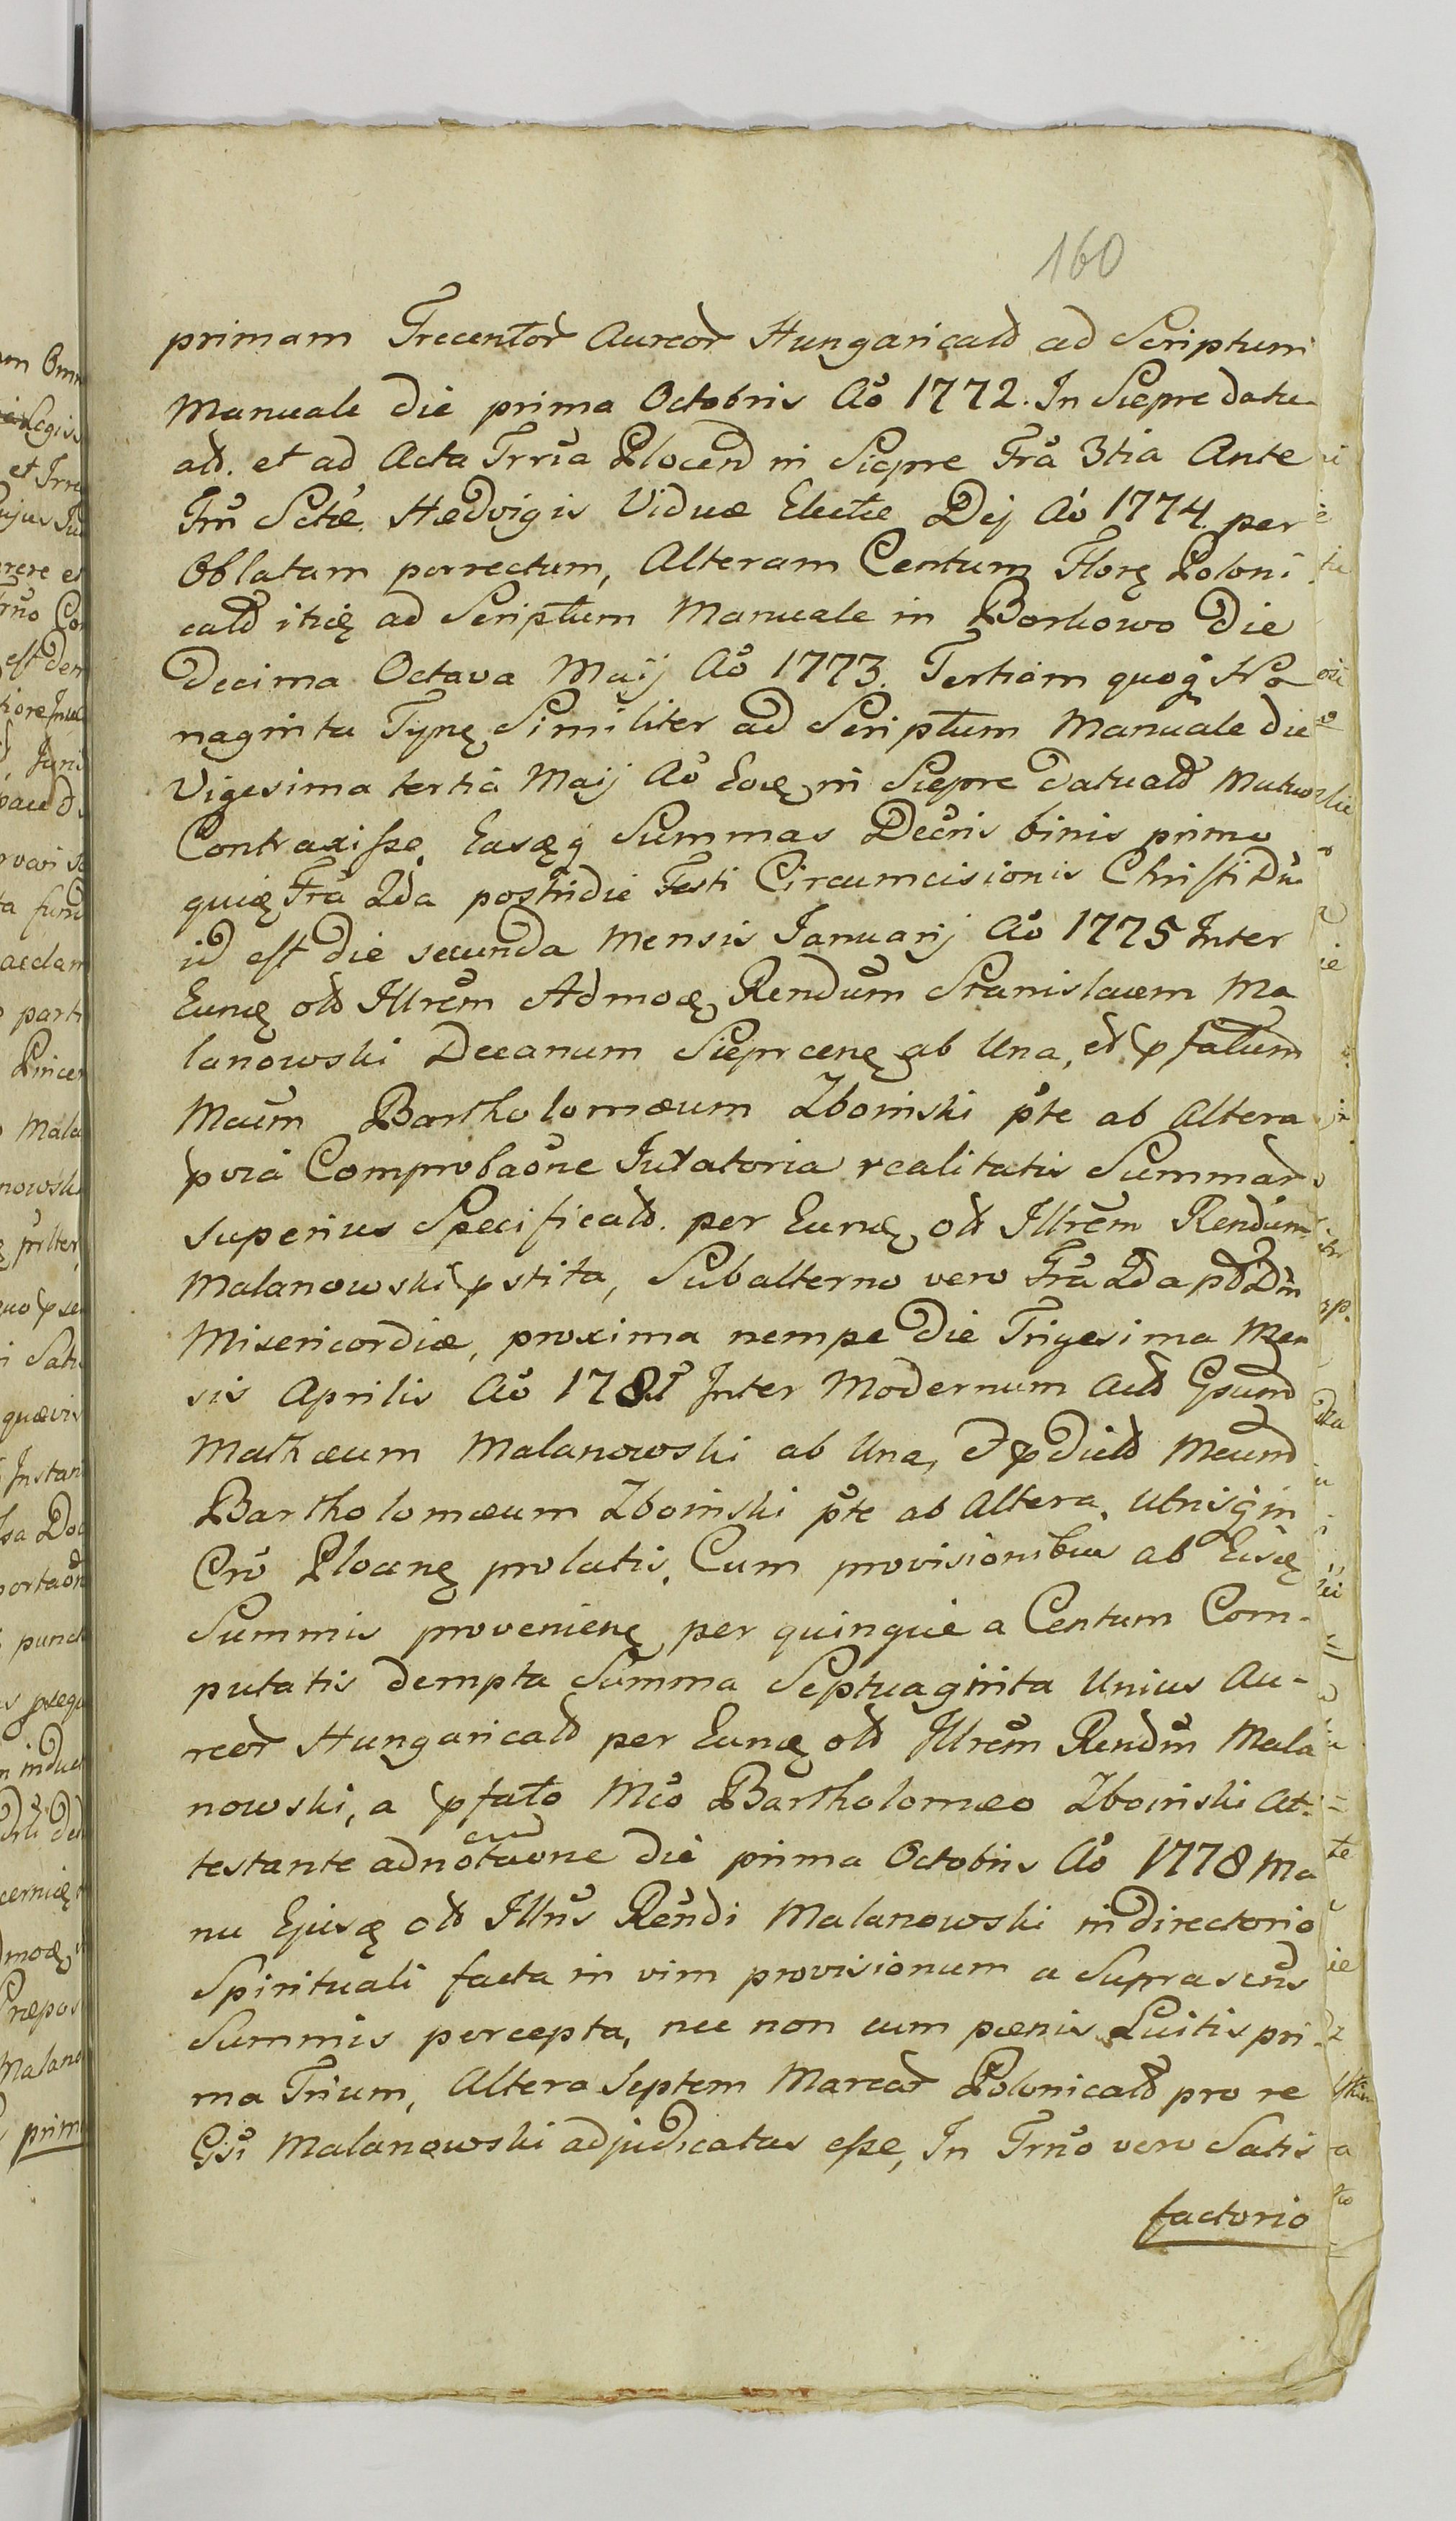 160
primam Trecentor Aureor Hungaricald ad Scriptum
Manuale die prima Octobris Aõ 1772. In Siepre datu
ald. et ad Acta Trria Plocend in Siepre Fra 3tia Ante
Frū Sctæ Hædvigis Viduæ Electæ Dej Aõ 1774 per
Oblatam porrectum, Alteram Centum Florę Poloni
cald itię ad Scriptum Manuale in Borkowo die
Decima Octava Maij Aõ 1773. Tertiam quoq No
naginta Tynę Similiter ad Scriptum Manuale die
Vigesima tertia Maij Aõ Eoę in Siepre datuald Mutuo
Contraxisse, Easęq Summas Decris binis primo
quię Fra 2da postridie Festi Circumcisionis Christi Dñi
id est die secunda Mensis Januarij Aõ 1775 Inter
Eunę old Illrem Admoę Rendum Stanislaum Ma
lanowski Decanum Sieprcenę ab Una, et pfatum
Mcum Bartholomæum Zboinski pte ab Altera
pvia Comprobaone Juratoria realitatis Summar
superius Specificald. per Eunę old Illrem Rendum
Malanowski pstita, Subalterno vero Fra 2da pd Dñi
Misericordiæ, proxima nempe die Trigesima Men
sis Aprilis Aõ 1781 Inter Modernum Auld Gsum
Mathæum Malanowski ab Una, et pdictd Mcum
Bartholomæum Zboinski pte ab Altera, Utrisq in
Crō Plocenę prolatis, Cum provisionibus ab Eisę
Summis provenienę per quinque a Centum Com-
putatis dempta Summa Septuaginta Unius Au-
reor Hungaricald per Eunę old Illrem Rendm Mala
nowski, a pfato Mco Bartholomæo Zboinski At-
testante adnotaone die prima Octobris Aõ 1778 Ma
nu Ejusę old Illris Rendi Malanowski in directorio
Spirituali facta in vim provisionum a Suprascris
Summis percepta, nec non cum pænis Luitis pri
ma Trium, Altera Septem Marcar Polonicald pro re
Gsi Malanowski adjudicatas esse, In Trno vero Satis
factorio